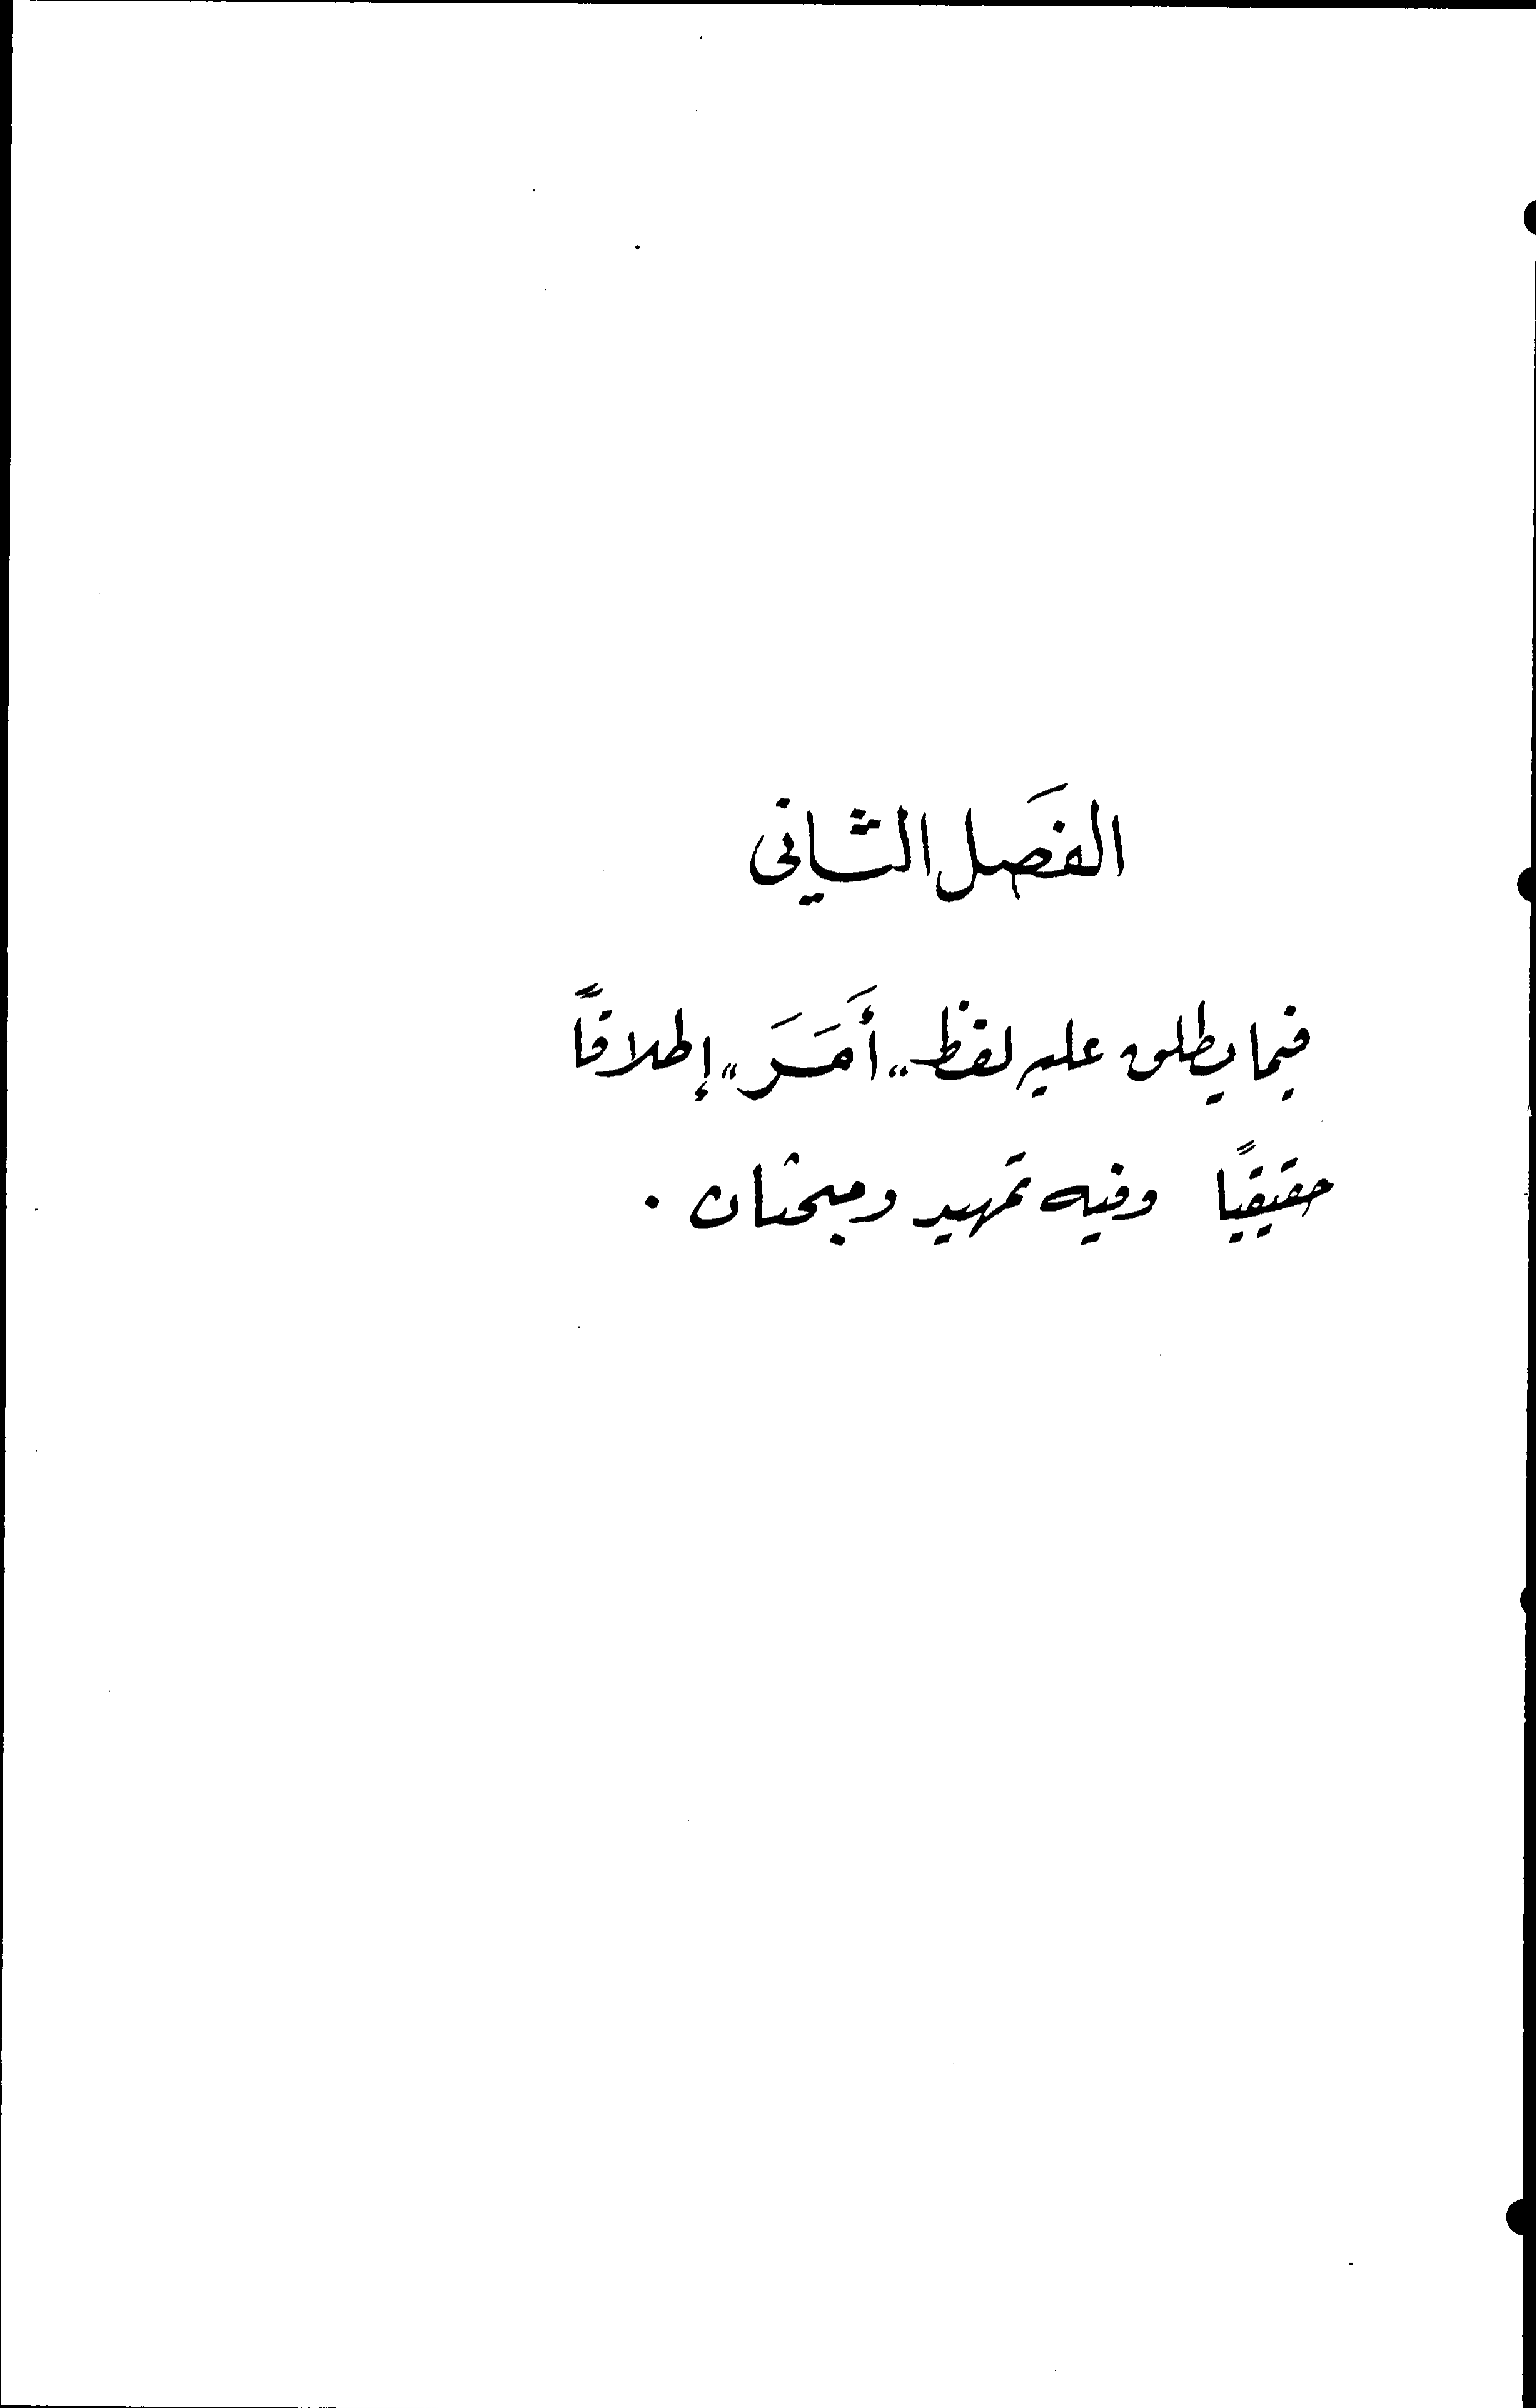 الفصَل الثاني
فيما يطلق عليه لفظ „أَمَرَ“ إطلاقاً
حقيقيًا وفيه تمهيد ومبحثان .